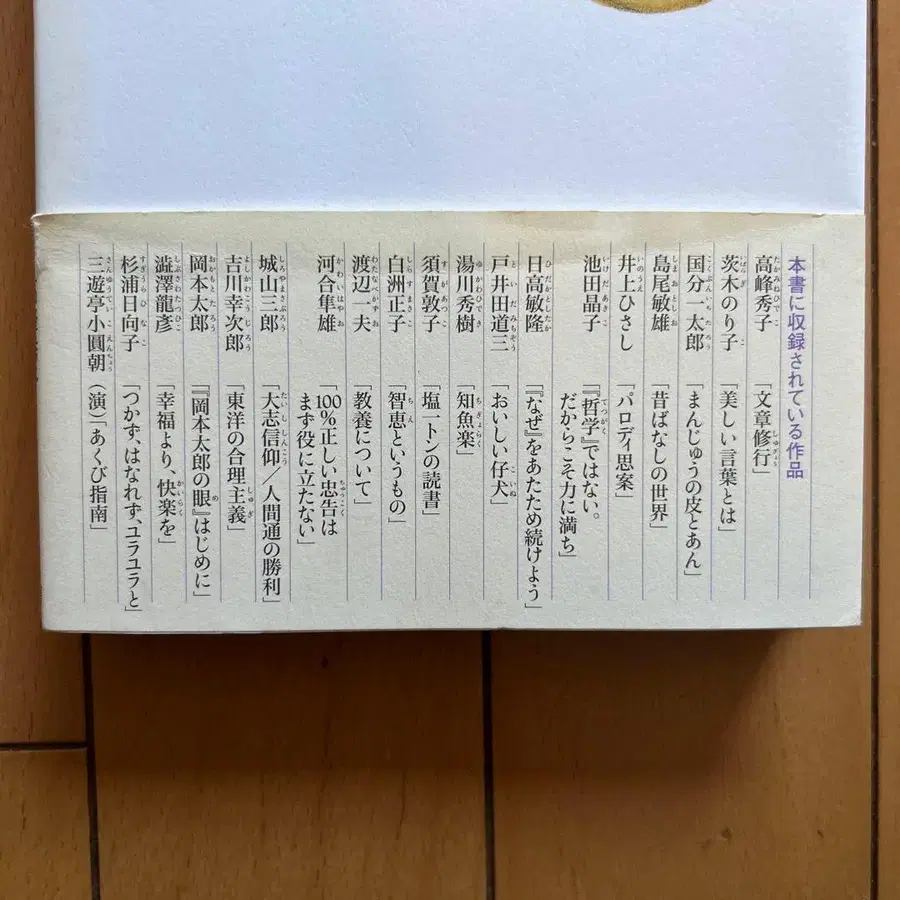 本書に収録されている作品
高峰秀子 「文章修行」
茨木のり子 「美しい言葉とは」
国分一太郎 「まんじゅうの皮とあん」
島尾敏雄 「昔ばなしの世界」
井上ひさし 「パロディ思案」
池田晶子 「『哲学』ではない。
だからこそ力に満ち」
日高敏隆 「『なぜ』をあたため続けよう」
戸井田道三 「おいしい仔犬」
湯川秀樹 「知魚楽」
須賀敦子 「塩一トンの読書」
白洲正子 「智恵というもの」
渡辺一夫 「教養について」
河合隼雄 「100%正しい忠告は
まず役に立たない」
城山三郎 「大志信仰/人間通の勝利」
吉川幸次郎 「東洋の合理主義」
岡本太郎 「『岡本太郎の眼』はじめに」
澁澤龍彦 「幸福より、快楽を」
杉浦日向子 「つかず、はなれず、ユラユラと」
三遊亭小圓朝 (演)「あくび指南」